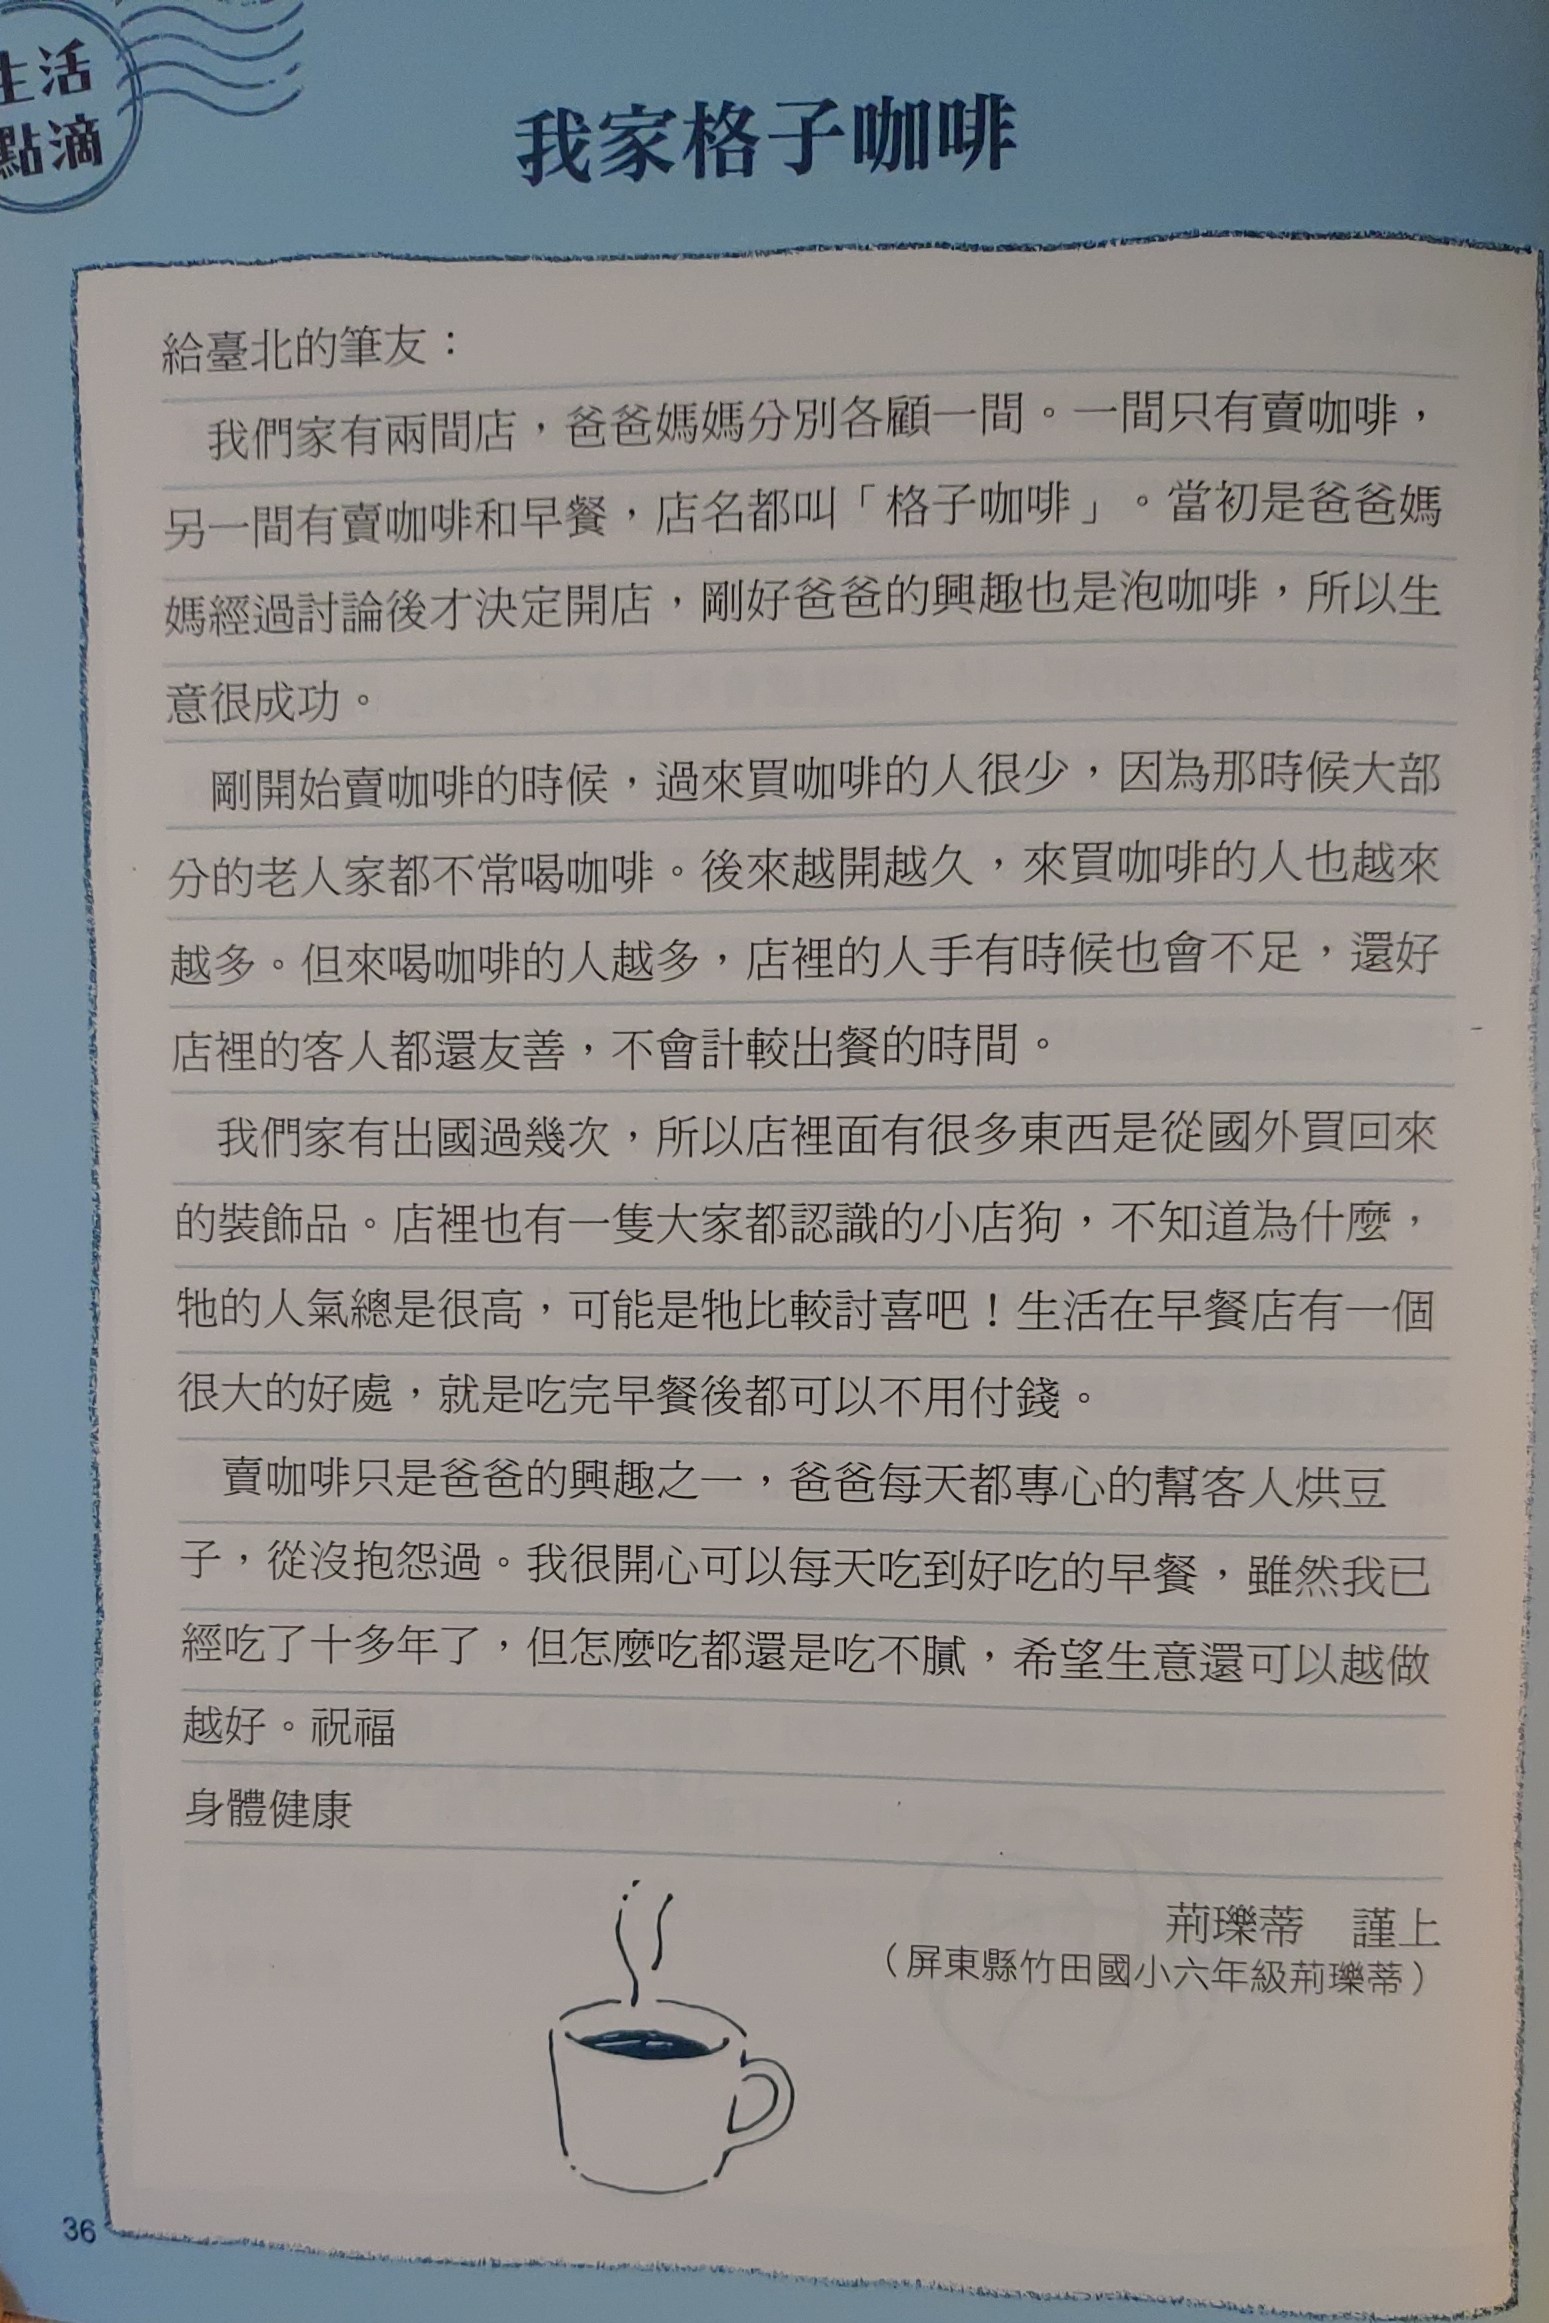 生活
點滴
我家格子咖啡
給臺北的筆友：
我們家有兩間店，爸爸媽媽分別各顧一間。一間只有賣咖啡，
另一間有賣咖啡和早餐，店名都叫「格子咖啡」。當初是爸爸媽
媽經過討論後才決定開店，剛好爸爸的興趣也是泡咖啡，所以生
意很成功。
剛開始賣咖啡的時候，過來買咖啡的人很少，因為那時候大部
分的老人家都不常喝咖啡。後來越開越久，來買咖啡的人也越來
越多。但來喝咖啡的人越多，店裡的人手有時候也會不足，還好
店裡的客人都還友善，不會計較出餐的時間。
我們家有出國過幾次，所以店裡面有很多東西是從國外買回來
的裝飾品。店裡也有一隻大家都認識的小店狗，不知道為什麼，
牠的人氣總是很高，可能是牠比較討喜吧！生活在早餐店有一個
很大的好處，就是吃完早餐後都可以不用付錢。
賣咖啡只是爸爸的興趣之一，爸爸每天都專心的幫客人烘豆
子，從沒抱怨過。我很開心可以每天吃到好吃的早餐，雖然我已
經吃了十多年了，但怎麼吃都還是吃不膩，希望生意還可以越做
越好。祝福
身體健康
荊瓅蒂　謹上
（屏東縣竹田國小六年級荊瓅蒂）
36